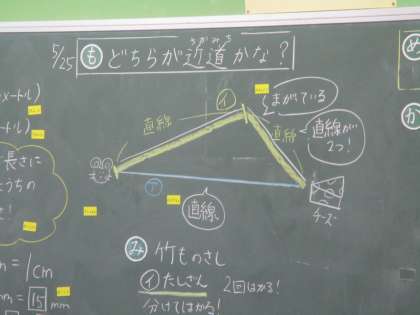 5/25
も どちらが近道かな？
ちかみち
め
メートル)
イ
まがっている
直線
直線
直線が
2つ！
か
ートル)
長さに
ようちの
ア
直線
チーズ
み 竹ものさし
m = 1cm
イ たしざん 2回はかる！
mm = 15 mm
分けてはかる！